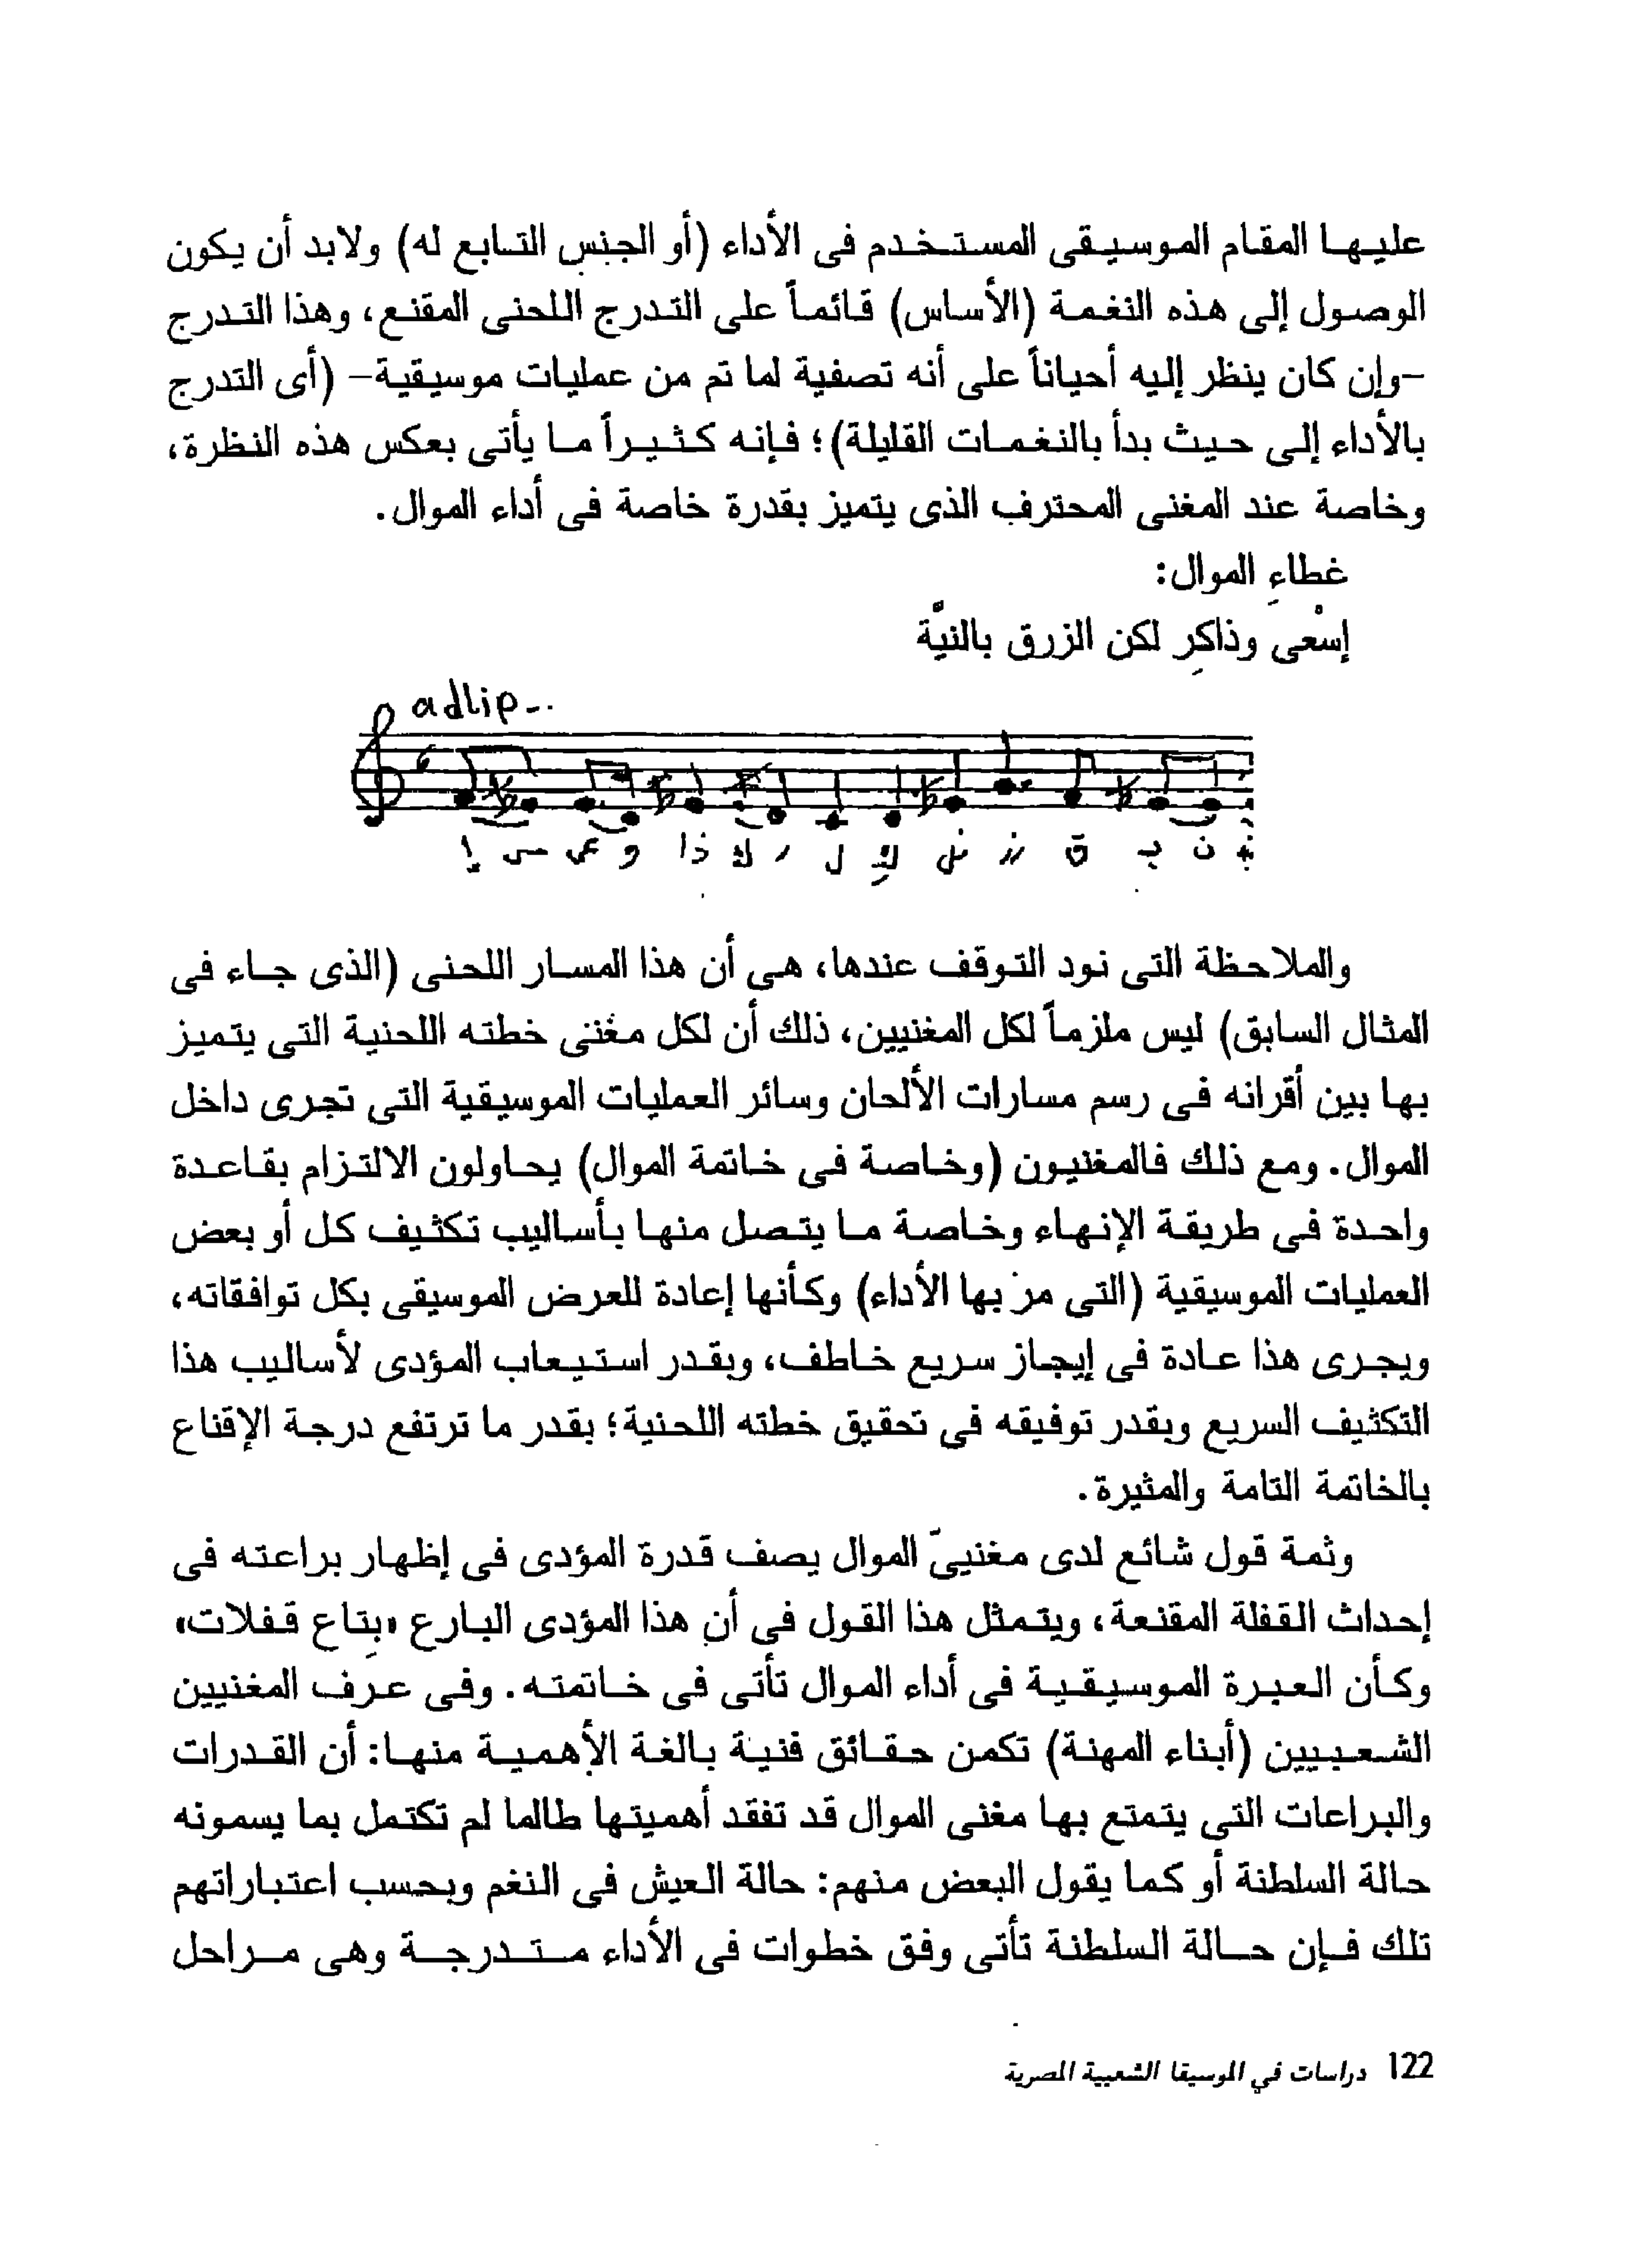 عليها المقام الموسيقى المستخدم فى الأداء (أو الجنس التابع له) ولابد أن يكون
الوصول إلى هذه النغمة (الأساس) قائماً على التدرج اللحنى المقنع، وهذا التدرج
-وإن كان ينظر إليه أحياناً على أنه تصفية لما تم من عمليات موسيقية- (أى التدرج
بالأداء إلى حيث بدأ بالنغمات القليلة)؛ فإنه كثيراً ما يأتى بعكس هذه النظرة،
وخاصة عند المغنى المحترف الذى يتميز بقدرة خاصة فى أداء الموال.
غطاءِ الموال:
إسْعى وذاكِر لكن الزرق بالنيَّة
adlip-..
إ س عى و ذا ك ر ل كِ ز ق ب ن
والملاحظة التى نود التوقف عندها، هى أن هذا المسار اللحنى (الذى جاء فى
المثال السابق) ليس ملزماً لكل المغنيين، ذلك أن لكل مغنى خطته اللحنية التى يتميز
بها بين أقرانه فى رسم مسارات الألحان وسائر العمليات الموسيقية التى تجرى داخل
الموال. ومع ذلك فالمغنيون (وخاصة فى خاتمة الموال) يحاولون الالتزام بقاعدة
واحدة فى طريقة الإنهاء وخاصة ما يتصل منها بأساليب تكثيف كل أو بعض
العمليات الموسيقية (التى مر بها الأداء) وكأنها إعادة للعرض الموسيقى بكل توافقاته،
ويجرى هذا عادة فى إيجاز سريع خاطف، وبقدر استيعاب المؤدى لأساليب هذا
التكثيف السريع وبقدر توفيقه فى تحقيق خطته اللحنية؛ بقدر ما ترتفع درجة الإقناع
بالخاتمة التامة والمثيرة.
وثمة قول شائع لدى مغنييّ الموال يصف قدرة المؤدى فى إظهار براعته فى
إحداث القفلة المقنعة، ويتمثل هذا القول فى أن هذا المؤدى البارع «بِتاع قفلات»
وكأن العبرة الموسيقية فى أداء الموال تأتى فى خاتمته. وفى عرف المغنيين
الشعبيين (أبناء المهنة) تكمن حقائق فنية بالغة الأهمية منها: أن القدرات
والبراعات التى يتمتع بها مغنى الموال قد تفقد أهميتها طالما لم تكتمل بما يسمونه
حالة السلطنة أو كما يقول البعض منهم: حالة العيش فى النغم وبحسب اعتباراتهم
تلك فإن حالة السلطنة تأتى وفق خطوات فى الأداء متدرجة وهى مراحل
122 دراسات في الموسيقا الشعبية المصرية